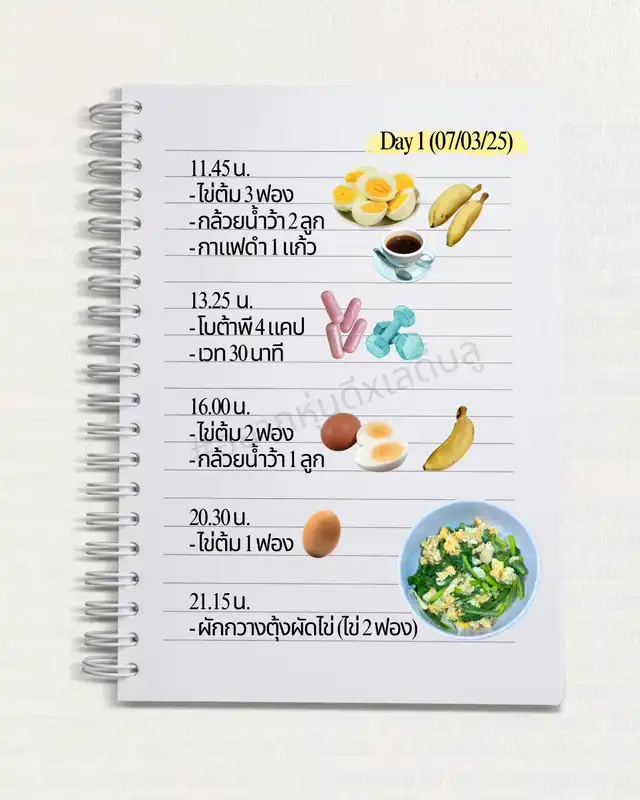 Day 1 (07/03/25)
11.45 น.
- ไข่ต้ม 3 ฟอง
- กล้วยน้ำว้า 2 ลูก
- กาแฟดำ 1 แก้ว
13.25 น.
- โบต้าพี 4 แคป
- เวท 30 นาที
16.00 น.
- ไข่ต้ม 2 ฟอง
- กล้วยน้ำว้า 1 ลูก
20.30 น.
- ไข่ต้ม 1 ฟอง
21.15 น.
- ผักกวางตุ้งผัดไข่ (ไข่ 2 ฟอง)